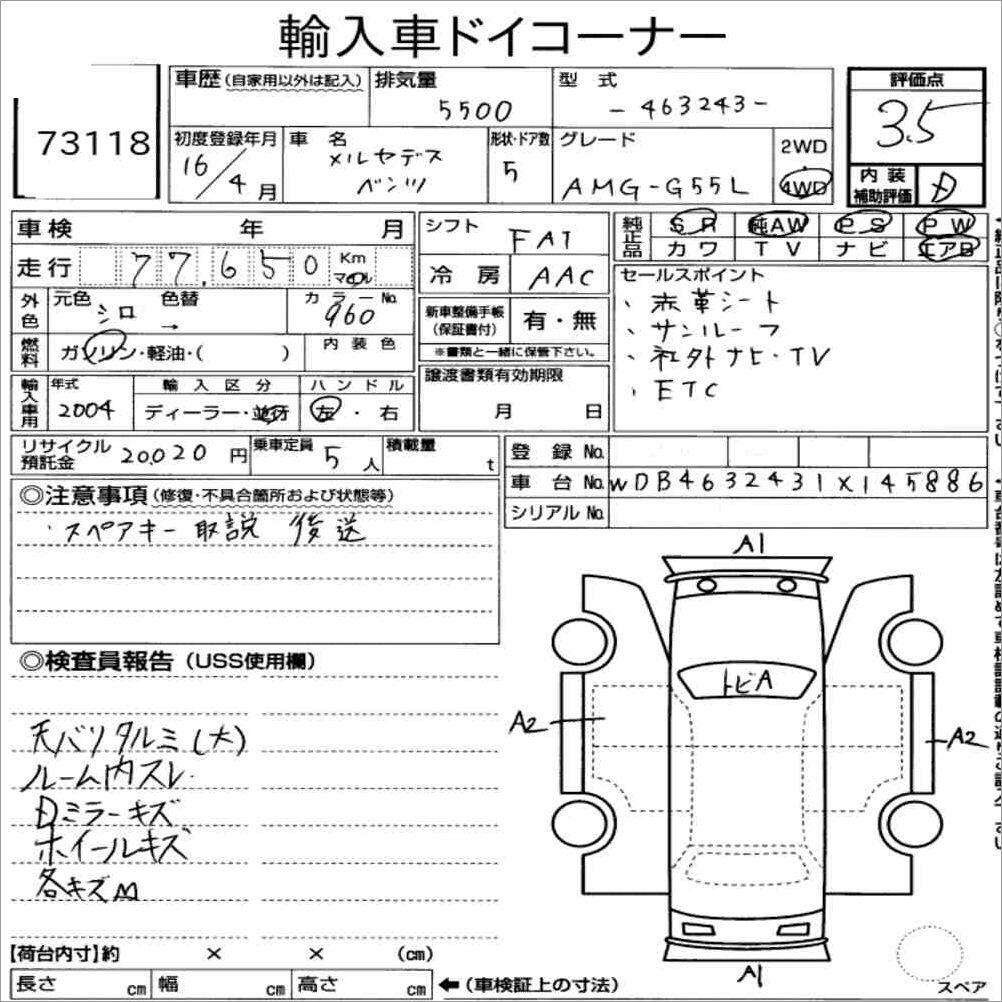 輸入車ドイコーナー
73118
車歴(自家用以外は記入) 排気量 5500 型式 -463243- 評価点 3.5
初度登録年月 16/4月 車名 メルセデス ベンツ 形状・ドア数 5 グレード AMG-G55L 2WD 4WD
内装補助評価 D
車検 年 月 シフト FAT 純正品 SR 純AW PS PW
カワ TV ナビ エアB
走行 77,650 Km マイル 冷房 AAC
セールスポイント
、赤革シート
、サンルーフ
、社外ナビ・TV
、ETC
外色 元色 シロ 色替 → カラーNo. 960
新車整備手帳(保証書付) 有・無
※書類と一緒に保管下さい。
燃料 ガソリン・軽油・( ) 内装色
輸入車用 年式 2004 輸入区分 ディーラー・並行 ハンドル 左・右
譲渡書類有効期限 月 日
リサイクル預託金 20,020円 乗車定員 5人 積載量 t
登録No.
車台No. WDB4632431X145886
シリアルNo.
◎注意事項(修復・不具合箇所および状態等)
・スペアキー 取説 後送
◎検査員報告(USS使用欄)
天バリタルミ(大)
ルーム内スレ
Dミラーキズ
ホイールキズ
各キズM
A1
トビA
A2
A2
A1
【荷台内寸】約 × × (cm)
長さ cm 幅 cm 高さ cm ←(車検証上の寸法)
スペア